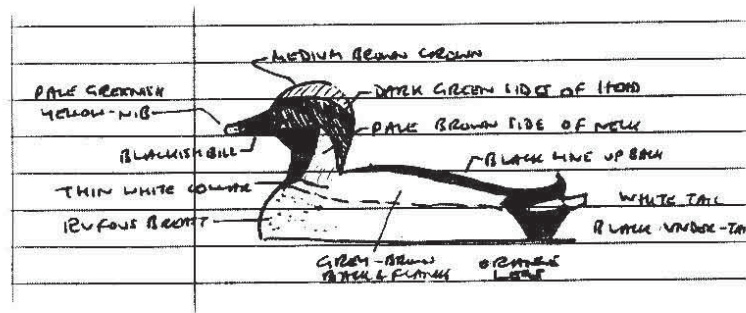 MEDIUM BROWN CROWN
PALE GREENISH
YELLOW-NIB
DARK GREEN SIDES OF HEAD
PALE BROWN SIDE OF NECK
BLACKISH BILL
BLACK LINE UP BACK
THIN WHITE COLLAR
WHITE TAIL
RUFOUS BREAST
BLACK UNDER-TA
GREY-BROWN
BACK & FLANKS
ORANGE
LEGS